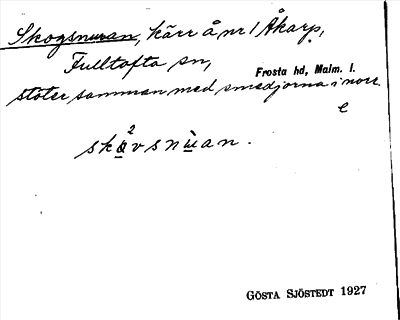 Skogsnuran, kärr å nr 1 Åkarp,
Fulltofta sn,
Frosta hd, Malm. l.
stöter samman med smedjorna i norr
e
2
skɑvsnùan.
GÖSTA SJÖSTEDT 1927